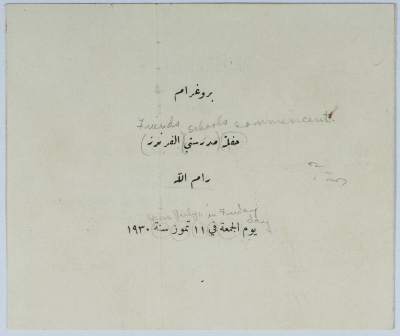 بروغرام
Friends schools commencent
حفلة (مدرستي) (الفرندز)
رام الله
July in Friday
day
يوم الجمعة في ١١ تموز سنة ١٩٣٠